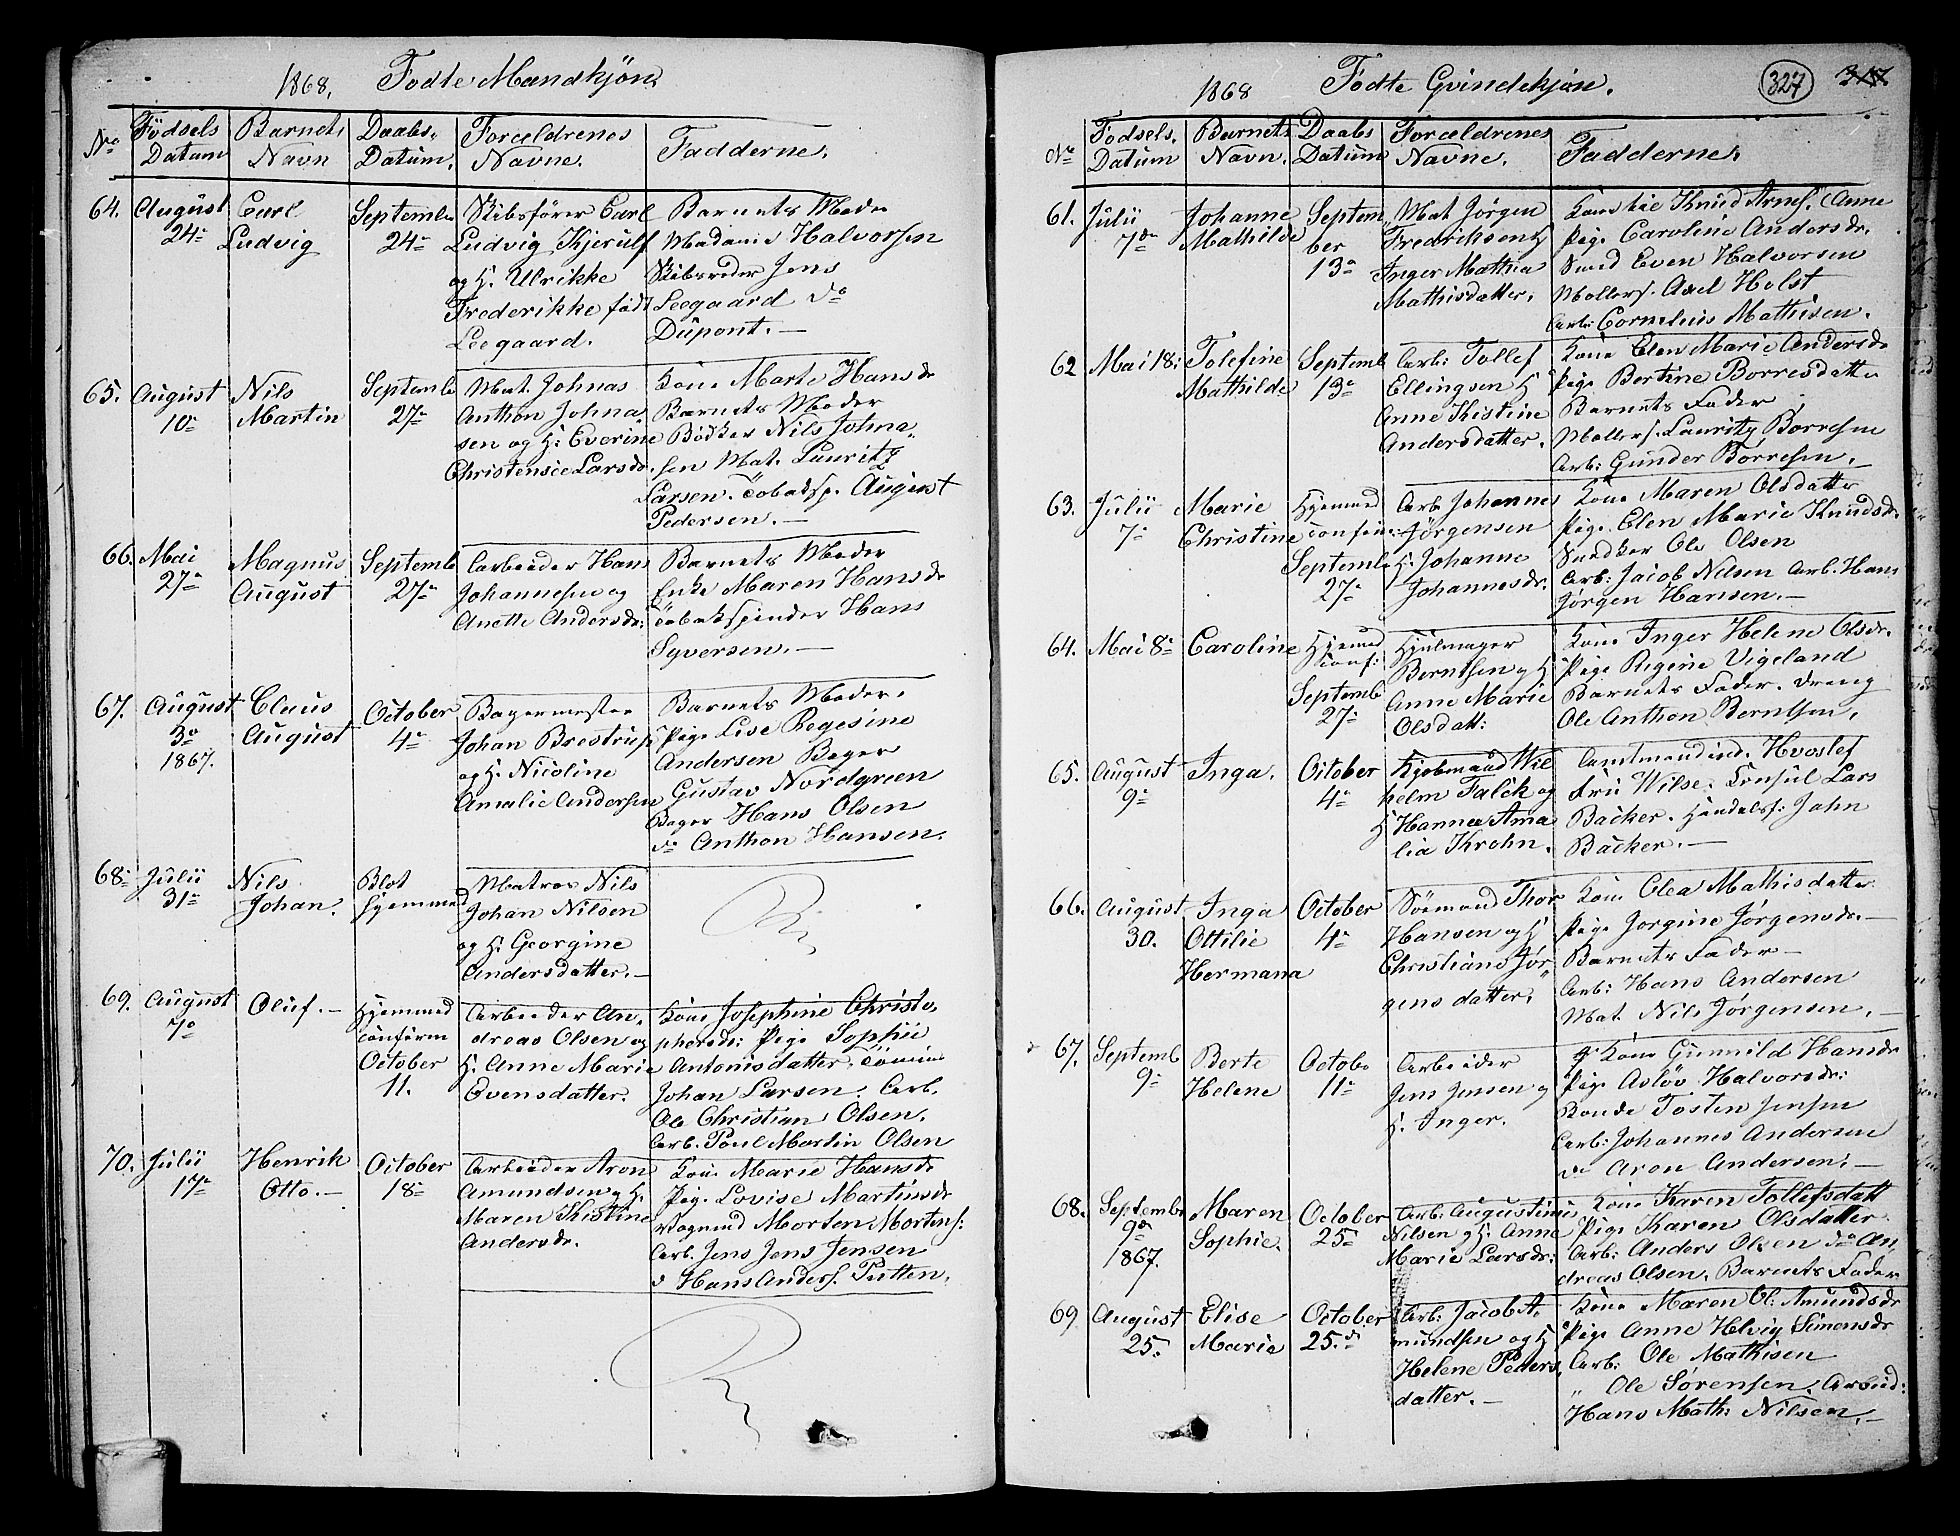 1868. Födte Mandkjön
No Födsels Datum Barnets Navn Daabs- Datum. Forældrenes Navne. Fadderne.
64. August 24de
Carl
Ludvig
Septembr
24de
Skibsfører Carl
Ludvig Kjerulf
og H. Ulrikke
Frederikke født
Leegaard.
Barnets Moder
Madame Halvorsen
Skibsreder Jens
Leegaard do
Dupont. —
65. August
10de
Nils
Martin
Septembr
27de
Mat. Johnas
Anthon Johna
sen og H: Everine
Christensee Larsdr.
Kone Marte Hansdr
Barnets Moder
Bödker Nils Johna,
sen Mat. Lauritz
Larsen. Tobaksp. August
Pedersen. —
66. Mai
27de
Magnus
August
Septemb
27de
Arbeider Hans
Johannesen og
Anette Andersdr:
Barnets Moder
Enke Maren Hansdr
Tobakspinder Hans
Syversen. —
67. August
3de
1867.
Claus
August
October
4de
Bagermester
Johan Brestrup
og H. Nicoline
Amalie Andersen
Barnets Moder.
Pige Lise Regesine
Andersen Bager
Gustav Nordgreen
Bager Hans Olsen
do Anthon Hansen.
68. Julii
31te
Nils
Johan.
Blot
hjemmed
Matros Nils
Johan Nilsen
og H. Georgine
Andersdatter. —
69. August
7de
Oluf. —
Hjemmed
confirm
October
11.
Arbeider An,
dreas Olsen og
H. Anne Marie
Evensdatter.
Kone Josephine Christo,
phersdr: Pige Sophie
Antonisdatter.
Johan Larsen. Arb.
Ole Christian Olsen.
Arb. Poul Martin Olsen
70. Julii
17de
Henrik
Otto. —
October
18de
Arbeider Aron
Amundsen og H.
Maren Kistine
Andersdr.
Kone Marie Hansdr
Pige Lovise Martinsdr
Vognmd Morten Mortens:
Arb. Jens Jens Jensen
d Hans Anders. Putten.
1868 Födte Qvindekjön. 327 317.
No Födsels. Datum Barnets Navn. Daabs Datum Forældrenes Navne. Fadderne.
61. Julii
7de
Johanne
Mathilde
Septem
ber
13de
Mat Jörgen
Fredriksen H
Inger Mathea
Mathisdatter.
Kone Knud Arnes. (Anne
Pige Caroline Andersdr.
Svend Even Halvorsen
Mollers. Axel Holst
Arb: Cornelius Mathisen.
62 Mai 18:
Tolefine
Mathilde
Septemb
13de
Arb: Tollef
Ellingsen H
Anne Kistine
Andersdatter.
Kone Elen Marie Andersdr
Pige Bertine Borresdatter
Barnets Fader
Mollers. Lauritz Börresen
Arb: Gunder Börresen. —
63. Julii
7de
Marie
Christine
Hjemmed
confir:
Septembr
27de
Arb Johannes
Jörgensen
H. Johanne
Johannesdr.
Kone Maren Olsdatter
Pige Elen Marie Knudsdr.
Snedker Ole Olsen
Arb: Jacob Nilsen Arb. Hans
Jörgen Hansen. —
64. Mai 8de
Caroline
Hjemmed
conf:
Septemb
27de
Hjulmager
Berntsen og H
Anne Marie
Olsdatt:
Kone Inger Helene Olsdr.
Pige Regine Vigeland
Barnets Fader. Dreng
Ole Anthon Berntsen.
65. August
9de
Inga.
October
4de
Kjøbmand Wil
helm Falck og
H Hanne Ama
lia Krohn.
Amtmandinde Hvoslef
Fru Wilse. Consul Lars
Bäcker. Handelsf: Jahn
Bäcker. —
66. August
30.
Inga
Ottilie
Hermana
October
4de
Sömand Thor
Hansen og H
Christiane Jör
gens datter.
Kone Olea Mathisdatter
Pige Jorgine Jörgensdr. —
Barnets Fader —
Arb: Hans Andersen
Mat. Nils Jörgensen. —
67. Septemb
9de
Berte
Helene
Octobr
11te
Arbeider
Jens Jensen og
H. Inger.
Kone Gunnild Hansdr
Pige Aslöv Halvorsdr:
Bonde Tosten Jensen
Arb: Johannes Andersen
do Aron Andersen. —
68. Septembr
9de
1867.
Maren
Sophie.
October
25de
Arb: Augustinu
Nilsen og H: Anne
Marie Larsdr:
Kone Karen Tollefsdatt
Pige Karen Olsdatter
Arb: Anders Olsen do An,
dreas Olsen. Barnets Fader
69 August
25.
Elise
Maria
October
25.de
Arb: Jacob A.
mundsen og H
Helene Peders,
datter. —
Kone Maren Ol: Amundsdr
Pige Anne Helvig Simonsdr
Arb: Ole Mathisen
" Ole Sörensen. Arbeid:
Hans Math: Nilsen. —